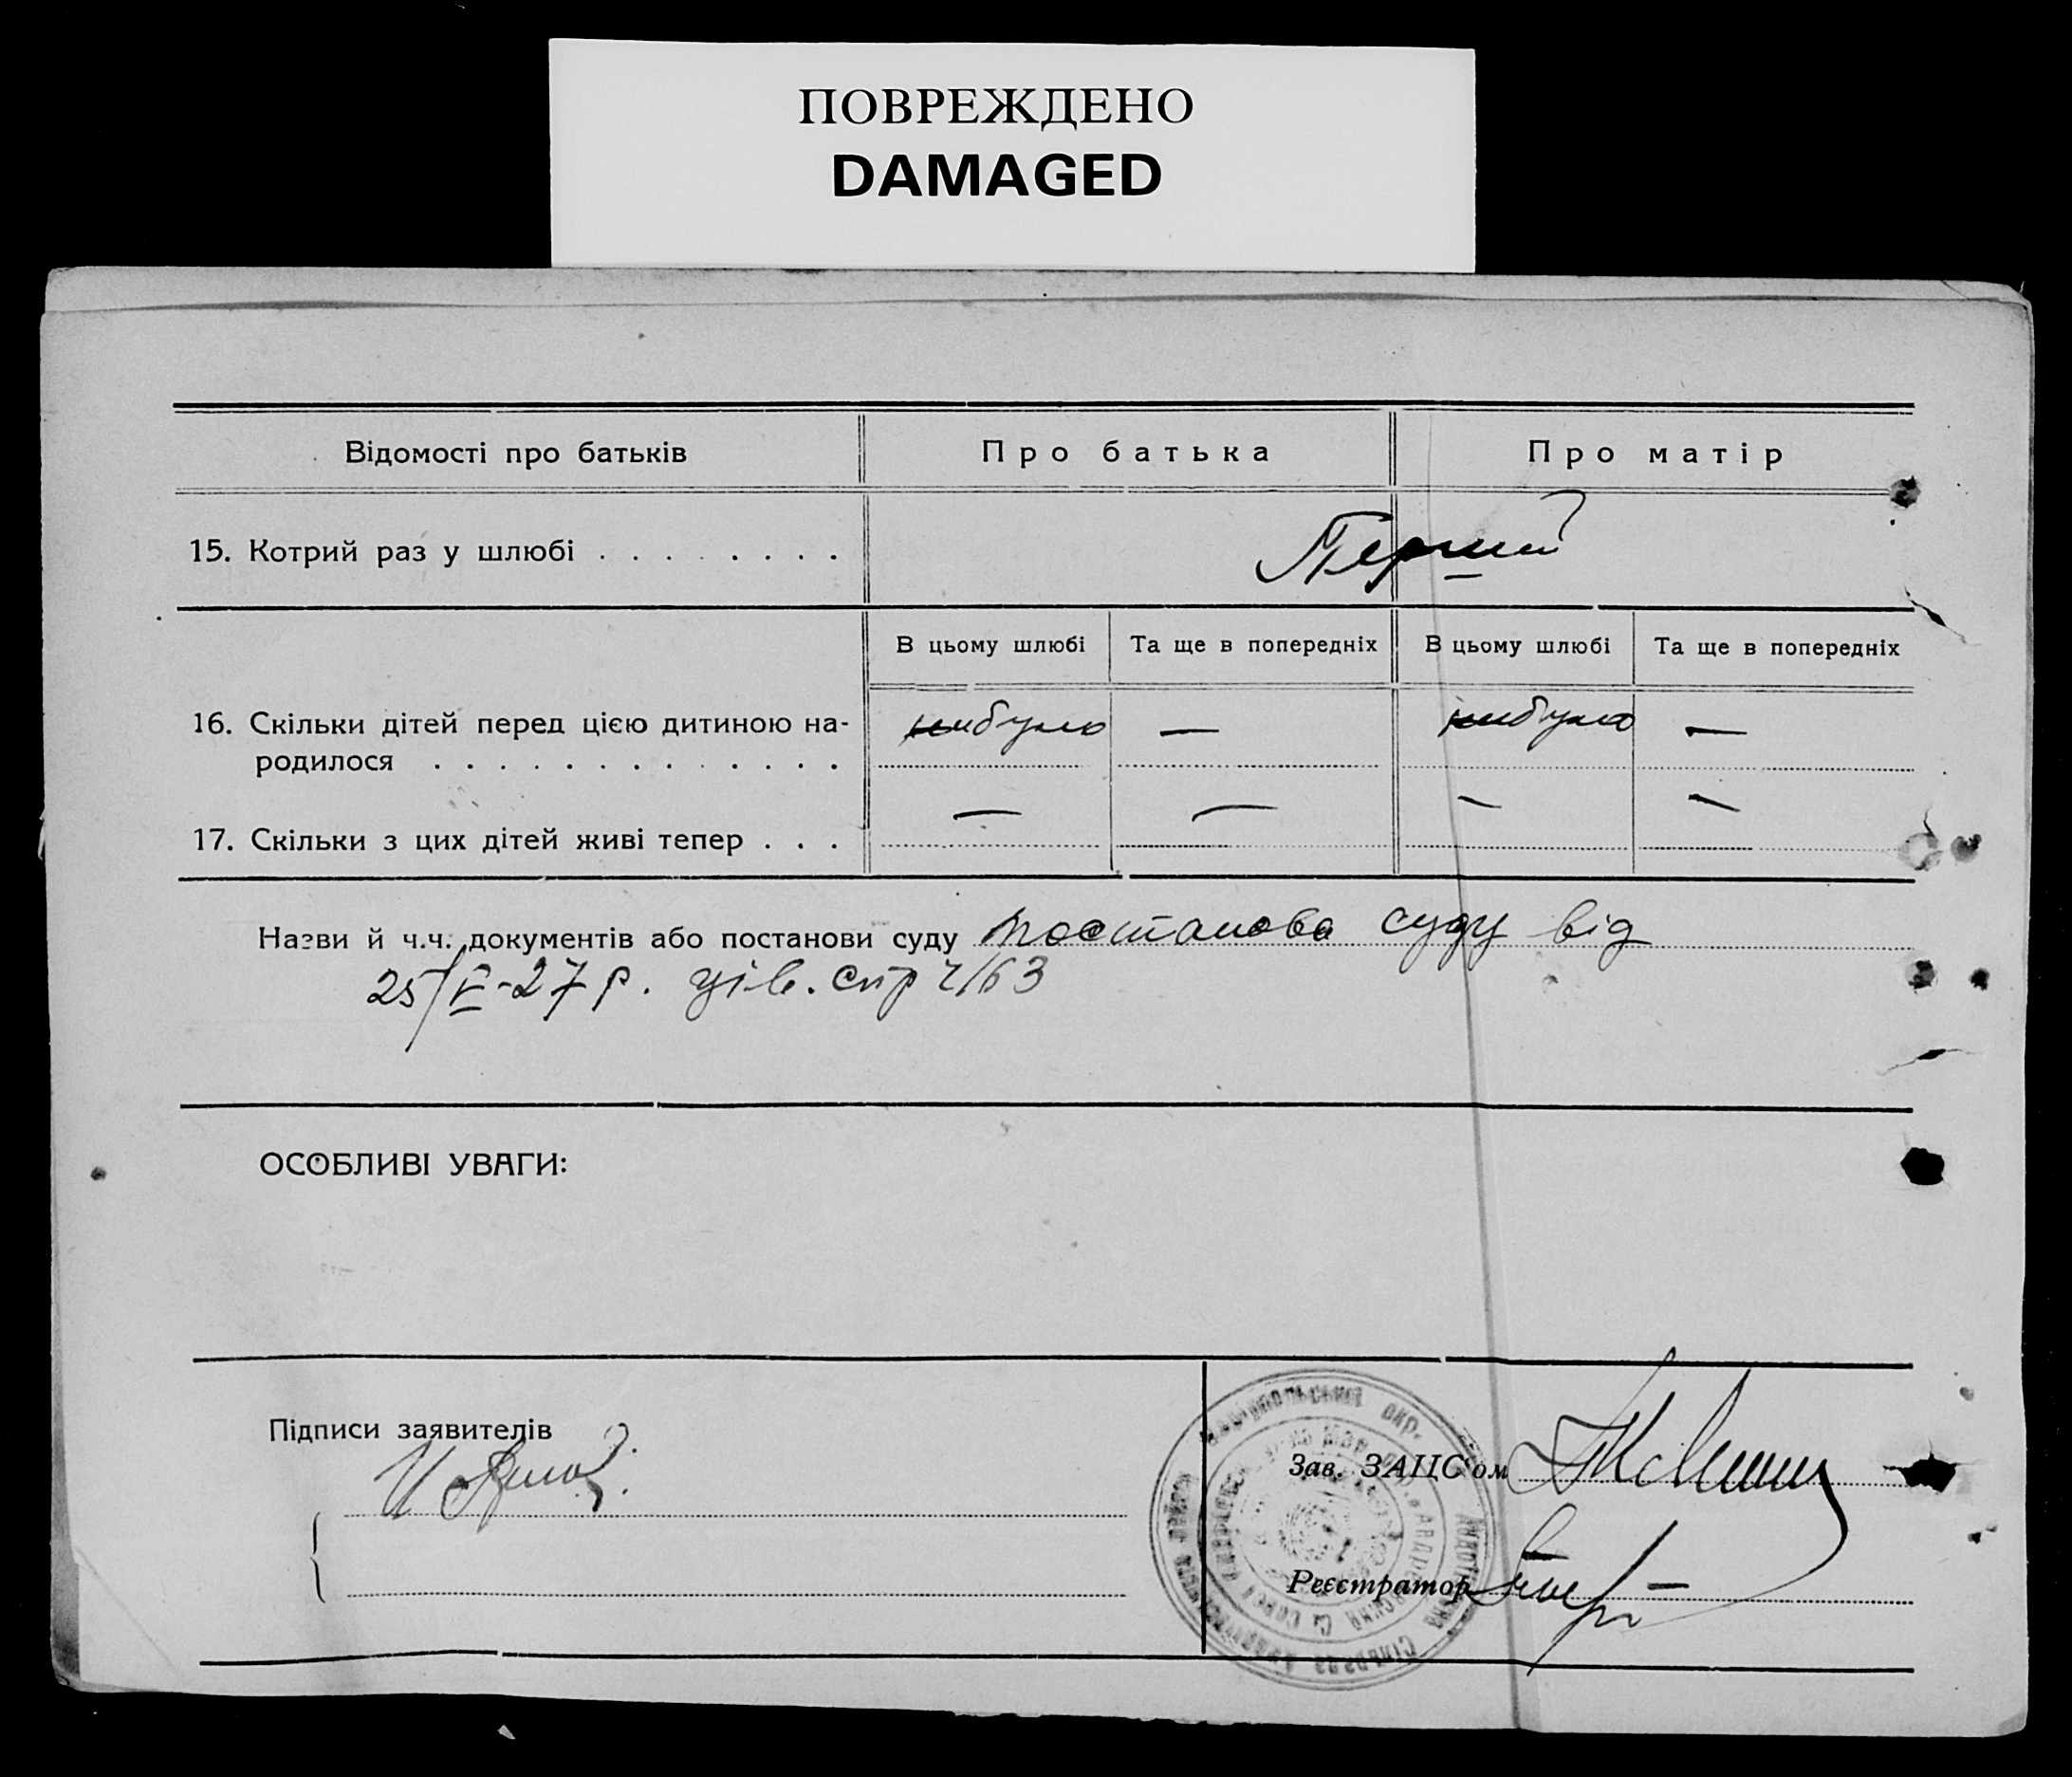 ПОВРЕЖДЕНО
DAMAGED
Відомості про батьків
Про батька
Про матір
15. Котрий раз у шлюбі . . . . . . . .
Перший
В цьому шлюбі
Та ще в попередніх
В цьому шлюбі
Та ще в попередніх
16. Скільки дітей перед цією дитиною на-
родилося . . . . . . . . . . . . .
небуло
—
небуло
—
17. Скільки з цих дітей живі тепер . . .
—
—
—
—
Назви й ч.ч. документів або постанови суду постанова суду від
25/V-27 р. ців. спр ч163
ОСОБЛИВІ УВАГИ:
Підписи заявителів
Зав. ЗАЦС'ом
Реєстратор